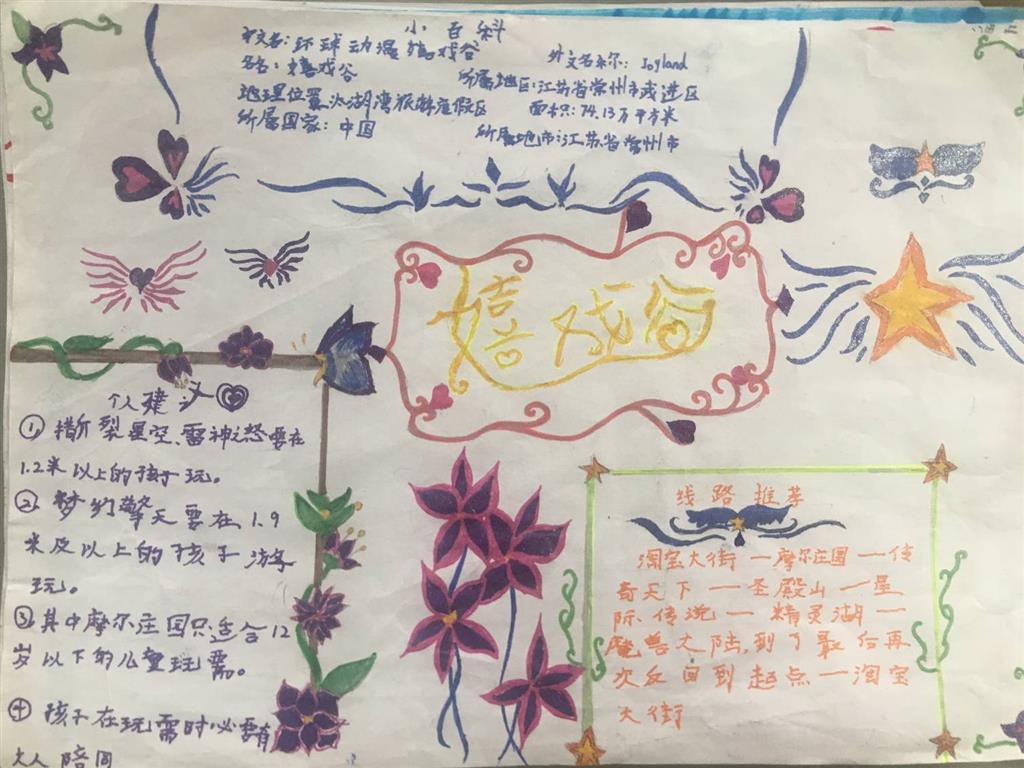 小百科
中文名:环球动漫嬉戏谷
外文名称:Joyland
别名:嬉戏谷
所属地区:江苏省常州市武进区
地理位置:太湖湾旅游度假区
面积:74.13万平方米
所属国家:中国
所属地市:江苏省常州市
嬉戏谷
个人建议
① 撕裂星空、雷神之怒要在
1.2米以上的孩子玩。
② 梦幻擎天要在1.9
米及以上的孩子游
玩。
③ 其中摩尔庄园只适合12
岁以下的儿童玩耍。
④ 孩子在玩需时必要有
大人陪同
线路推荐
淘宝大街—摩尔庄園—传
奇天下—圣殿山—星
际传说—精灵湖—
魔兽大陆,到了最后再
次反回到起点—淘宝
大街